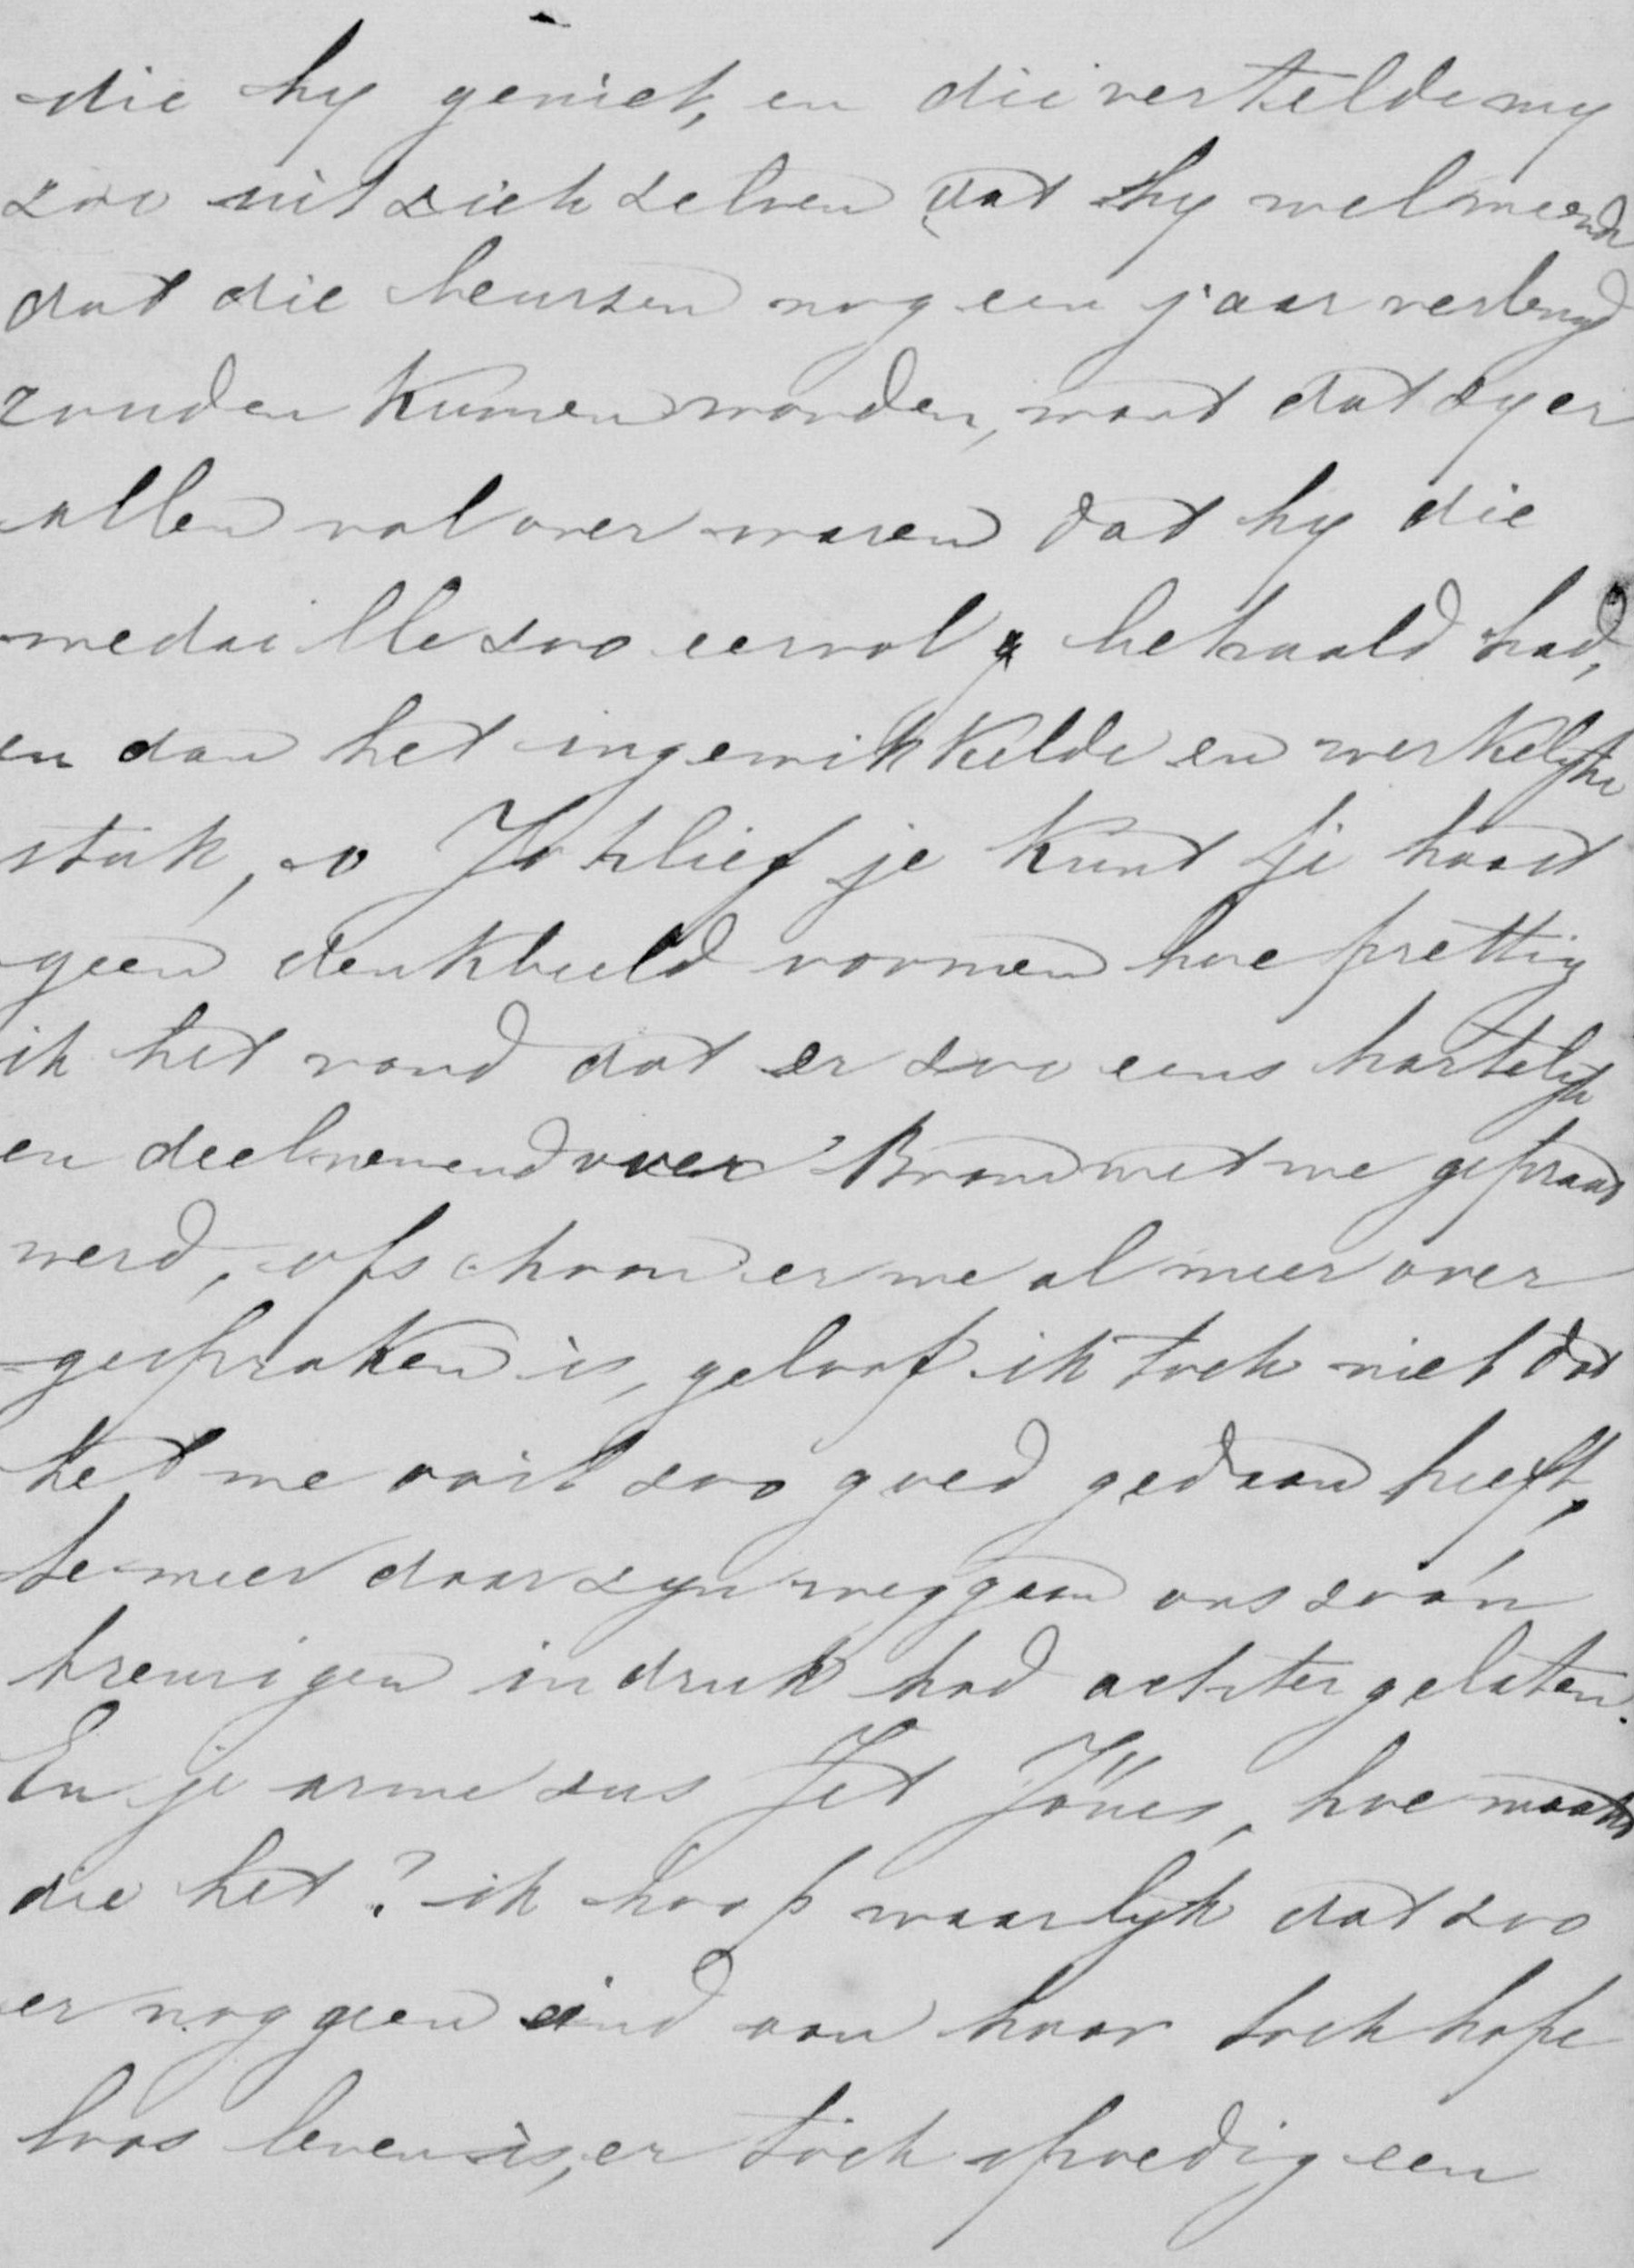 die hy geniet, en die vertelde my
zoo uit zich zelven dat hy wel meende
dat die beurzen nog een jaar verlengd
zouden kunnen worden, want dat zy er
allen vol over waren dat hy die
medaille zoo eervol behaald had,
en dan het ingewikkelde en werkelyke
stuk, o Jo lief je kunt je haast
geen denkbeeld vormen hoe prettig
ik het vond dat er zoo eens hartelyk
en deelnemend over Bram met me gepraat
werd, ofschoon er me al meer over
gesproken is, geloof ik toch niet dat
het me ooit zoo goed gedaan heeft,
te meer daar zyn weggaan ons zoo'n
treurigen indruk had achtergelaten.
En je arme zus Jet Jones, hoe maakt
die het? ik hoop waarlyk dat zoo
er nog geen eind aan haar toch hope
loos leven is, er toch spoedig een